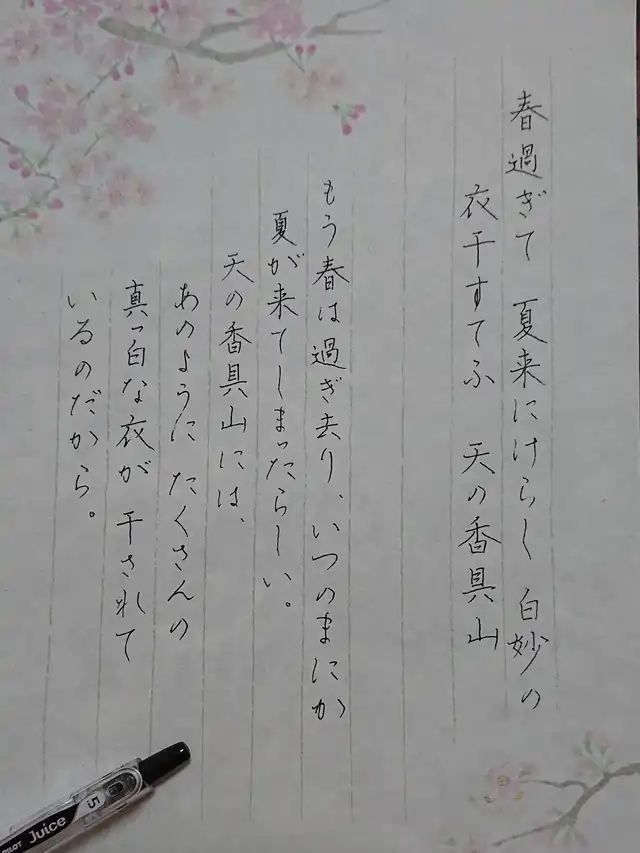 春過ぎて 夏来にけらし 白妙の
衣干すてふ 天の香具山
もう春は過ぎ去り、いつのまにか
夏が来てしまったらしい。
天の香具山には、
あのように たくさんの
真っ白な衣が 干されて
いるのだから。
PILOT Juice 05